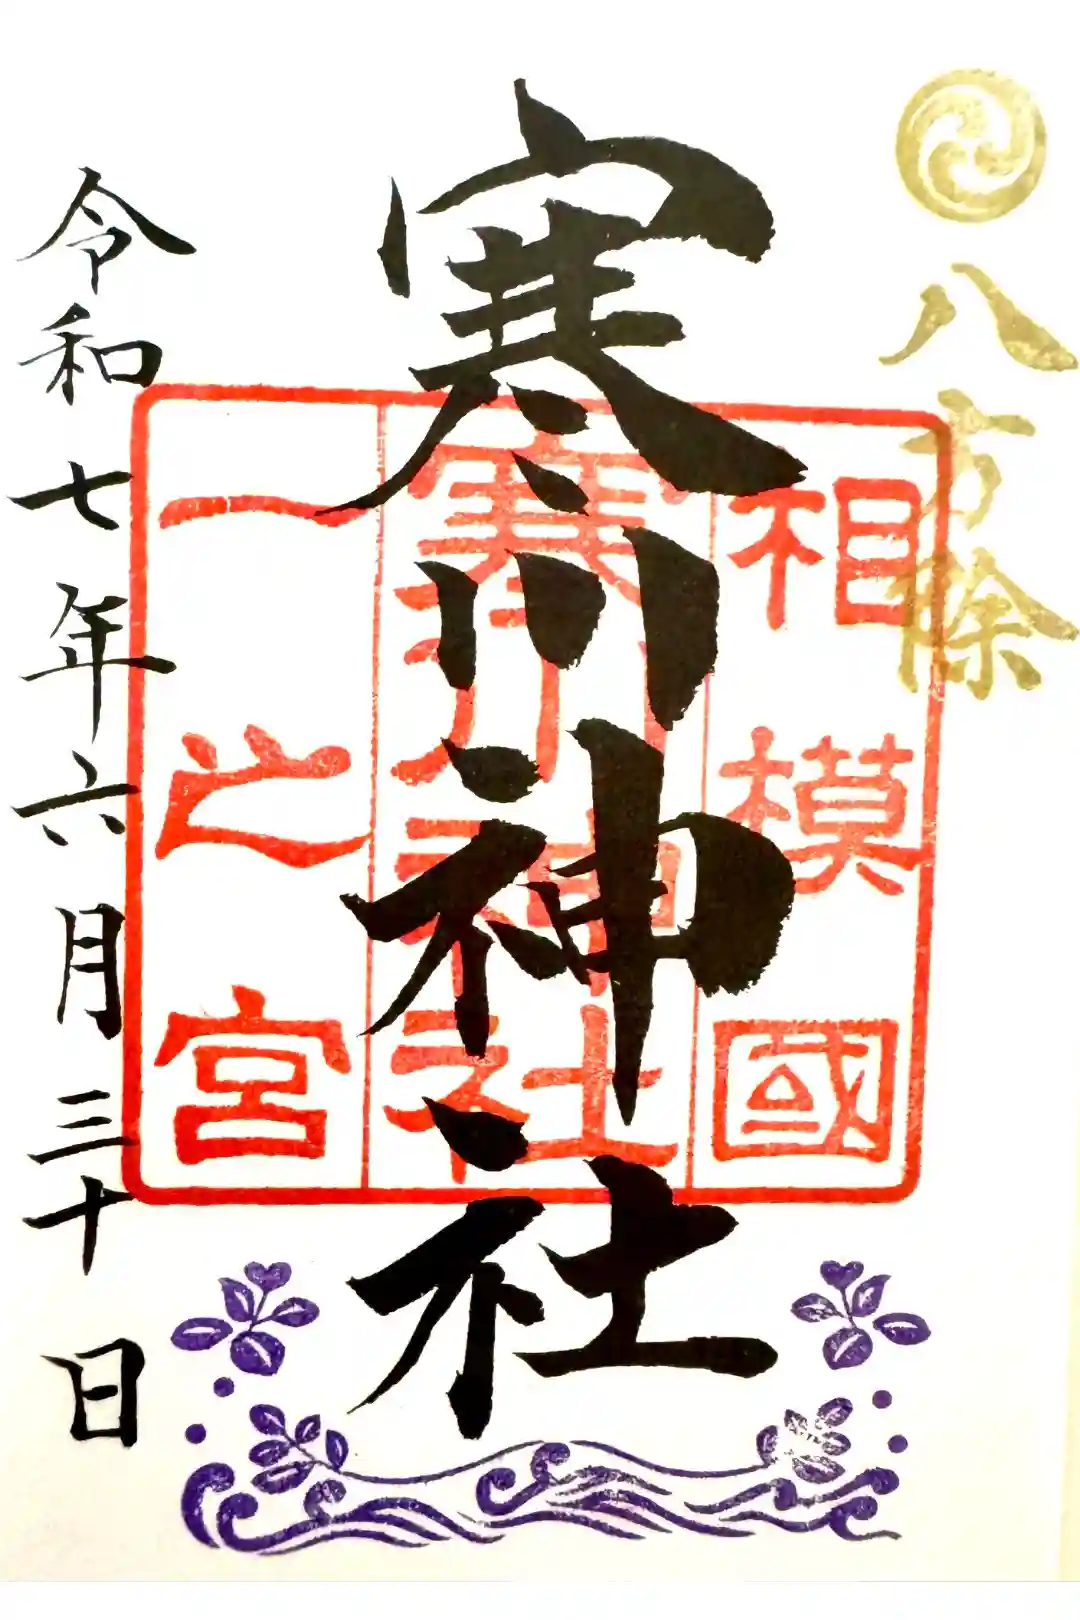 八方除
寒川神社
相模國
寒川神社
一之宮
令和七年六月三十日